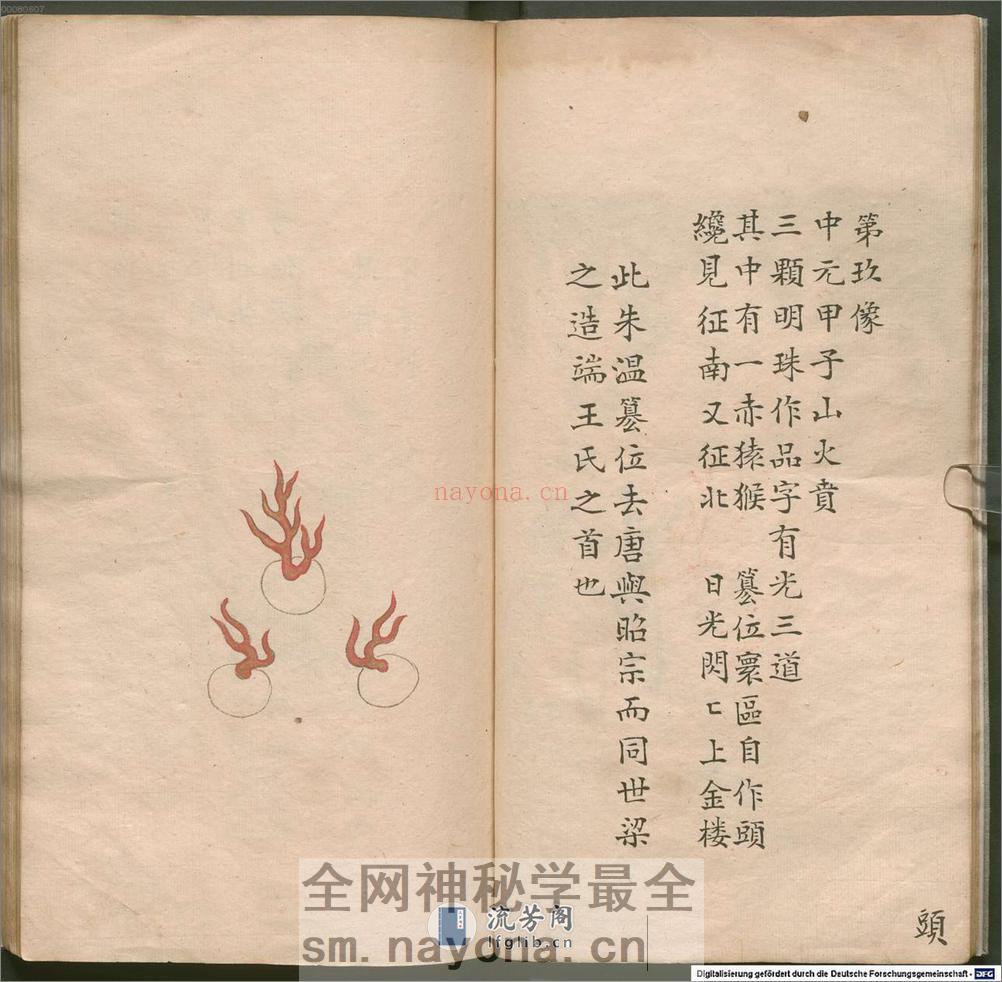 00080607
第玖像
中元甲子山火賁
三顆明珠作品字有光三道
其中有一赤猿猴 簒位寰區自作頭
纔見征南又征北 日光閃〻上金楼
此朱温簒位去唐與昭宗而同世梁
之造端王氏之首也
頭
nayona.cn
全网神秘学最全
流芳阁
lfglib.cn
sm.nayona.cn
Digitalisierung gefördert durch die Deutsche Forschungsgemeinschaft - DFG